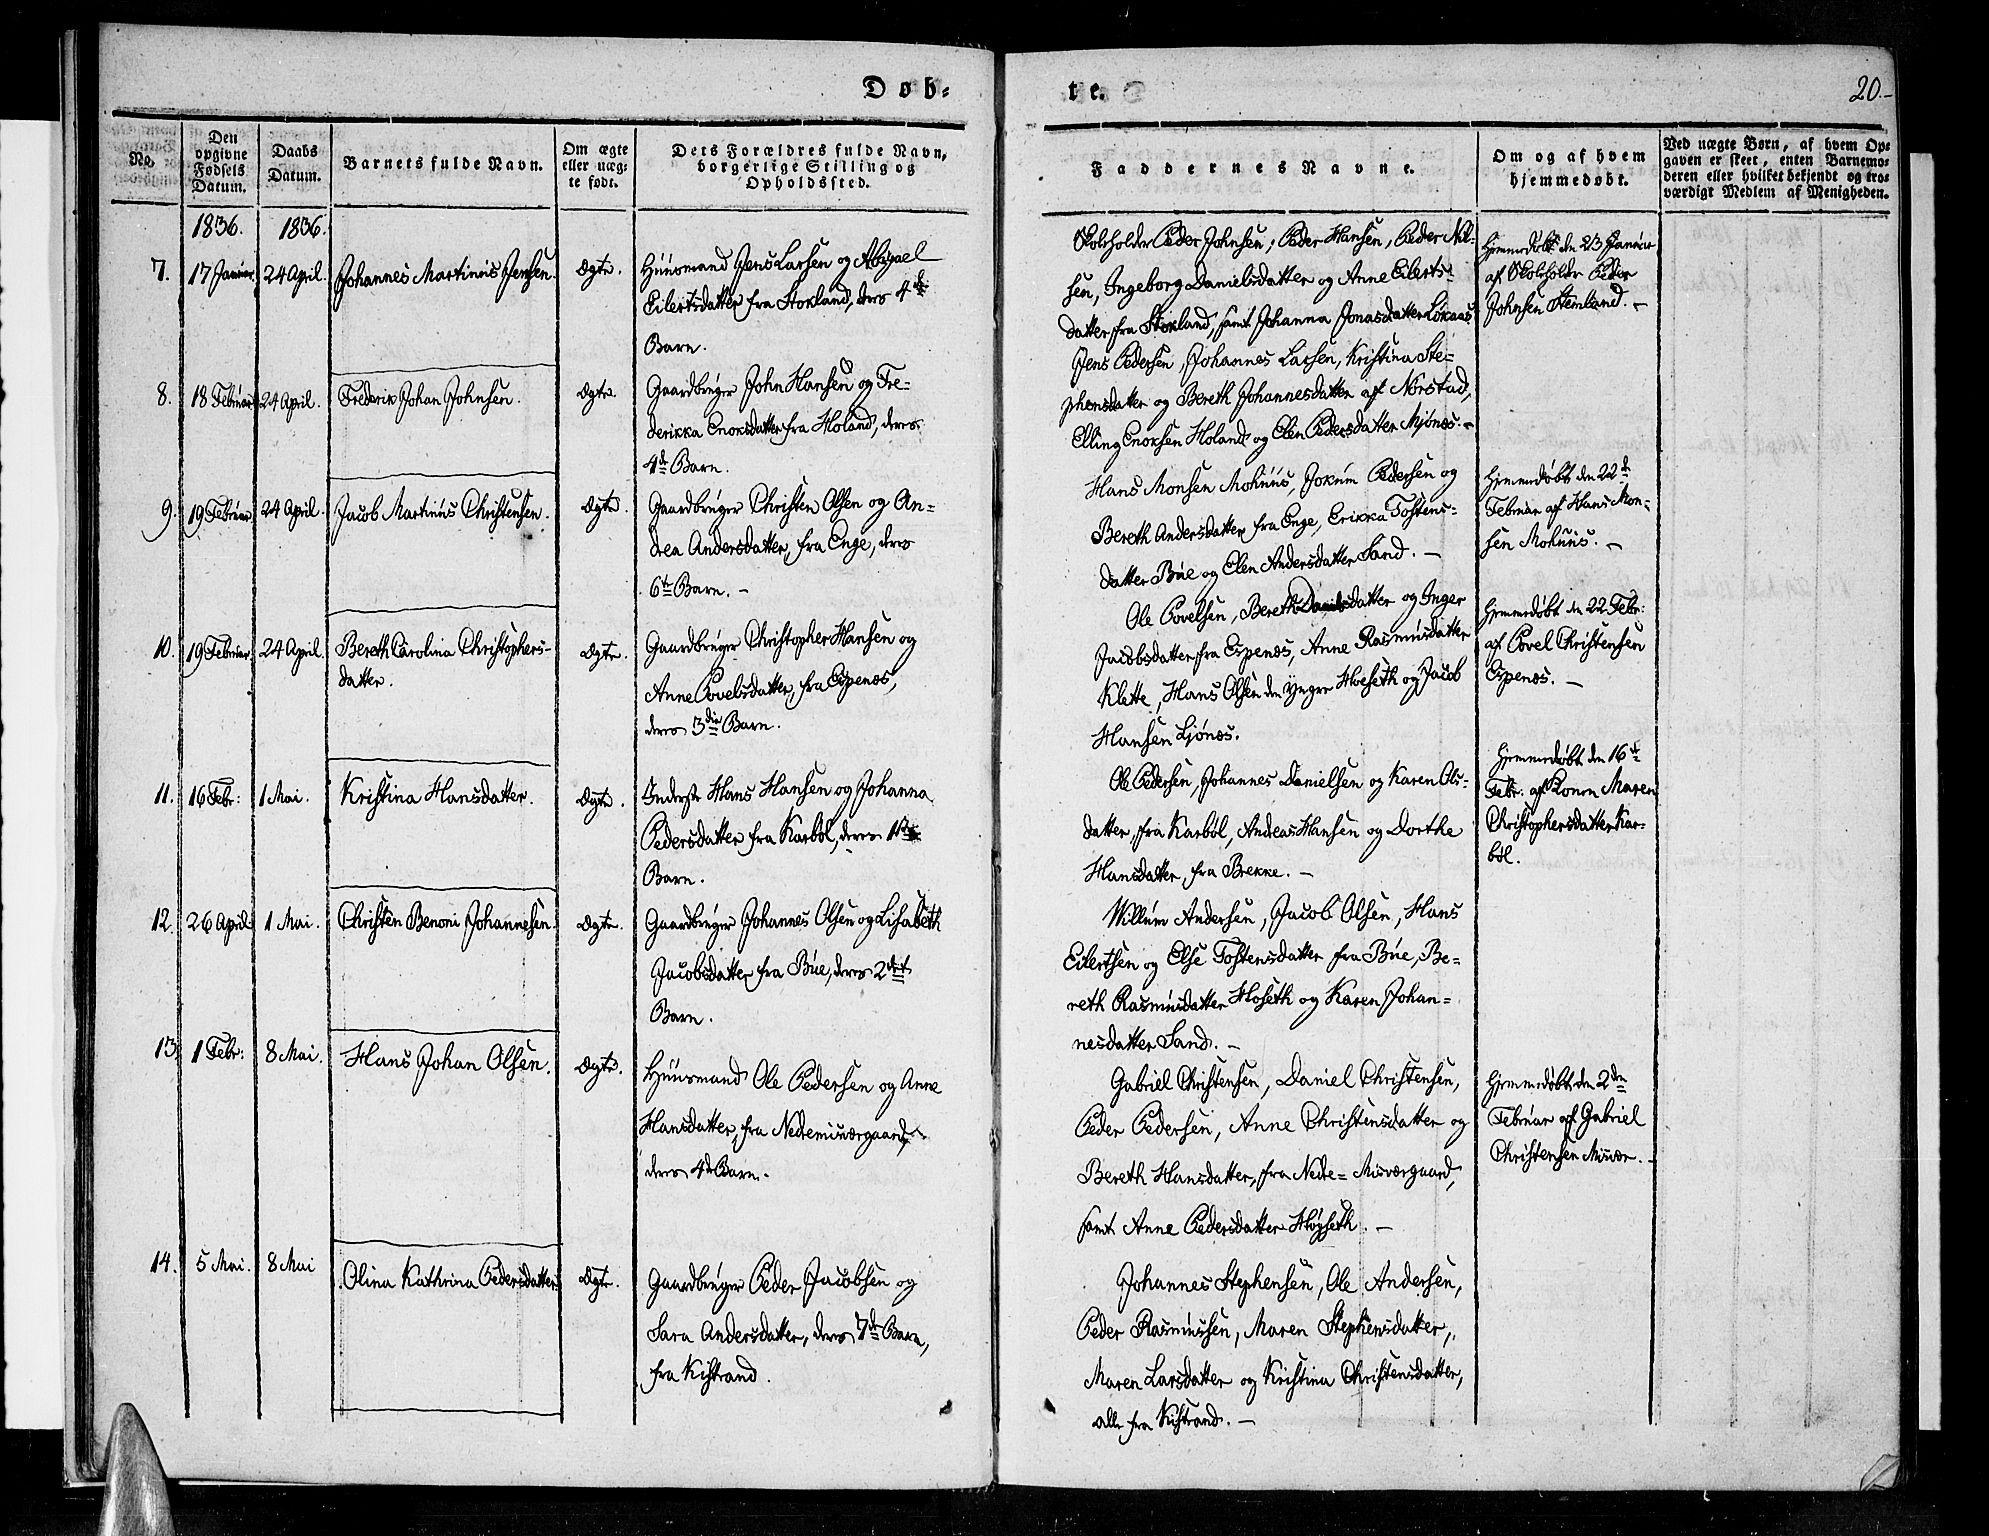 Døb-
No.
Den
opgivne
Fødsels
Datum.
Daabs
Datum.
Barnets fulde Navn.
Om ægte
eller uæg-
te født.
Dets Forældres fulde Navn,
borgerlige Stilling og
Opholdssted.
1836. 1836.
7. 17 Januar 24 April. Johannes Martinus Jensen. Ægte. Huusmand Jens Larsen og Abigael
Eilertsdatter fra Stokland, deres 4de
Barn.
8. 18 Februar 24 April. Frederik Johan Johnsen. Ægte. Gaardbruger John Hansen og Fre-
derikka Enoksdatter fra Holand, deres
4de Barn.
9. 19 Februar 24 April. Jacob Martinus Christensen. Ægte. Gaardbruger Christen Olsen og An-
drea Andersdatter, fra Enge, deres
6te Barn. -
10. 19 Februar 24 April. Bereth Carolina Christophers-
datter. Ægte. Gaardbruger Christopher Hansen og
Anne Povelsdatter, fra Espenæs,
deres 3die Barn.
11. 16 Febr: 1 Mai. Kristina Hansdatter. Ægte. Inderste Hans Hansen og Johanna
Pedersdatter fra Karbøl, deres 1ste
Barn.
12. 26 April 1 Mai. Christen Benoni Johannesen. Ægte. Gaardbruger Johannes Olsen og Lisabeth
Jacobsdatter fra Bue, deres 2det
Barn.
13. 1 Febr: 8 Mai. Hans Johan Olsen. Ægte. Huusmand Ole Pedersen og Anne
Hansdatter, fra Nedremisværgaard,
deres 4de Barn.
14. 5 Mai. 8 Mai Olina Kathrina Pedersdatter. Ægte. Gaardbruger Peder Jacobsen og
Sara Andersdatter, deres 7de Barn,
fra Kistrand.
te.
20.-
Faddernes Navne.
Om og af hvem
hjemmedøbt.
Ved uægte Børn, af hvem Op-
gaven er skeet, enten Barnemo-
deren eller hvilket bekjendt og tro-
værdigt Medlem af Menigheden.
Skoleholder Peder Johnsen, Peder Hansen, Peder Niel-
sen, Ingeborg Danielsdatter og Anne Eilerts-
datter, fra Stokland, samt Johanna Jonasdatter Løkaas
Hjemmedøbt den 23 Januar
af Skoleholder Peder
Johnsen Stemland. -
Jens Pedersen, Johannes Larsen, Kristina Ste-
phensdatter og Bereth Johannesdatter af Norstad,
Elling Enoksen Holand og Elen Pedersdatter Mjønæs. -
Hans Monsen Mohuus, Jokum Pedersen og
Bereth Andersdatter fra Enge, Erikka Tostens-
datter Bue og Elen Andersdatter Sand. -
Hjemmedøbt den 22de
Februar af Hans Mon-
sen Mohuus. -
Ole Povelsen, Bereth Danielsdatter og Inger
Jacobsdatter fra Espenæs, Anne Rasmusdatter
Klette, Hans Olsen den yngre Hoeseth og Jacob
Hansen Ljønæs.
Hjemmedøbt den 22 Febr:
af Povel Christensen
Espenæs. -
Ole Pedersen, Johannes Danielsen og Karen Ols-
datter, fra Karbøl, Andreas Hansen og Dorthe
Hansdatter, fra Bekke. -
Hjemmedøbt den 16de
Febr: af Konen Maren
Christophersdatter Kar-
bøl.
Willum Andersen, Jacob Olsen, Hans
Eilertsen og Else Tostensdatter fra Bue, Be-
reth Rasmusdatter Hoseth og Karen Johan-
nesdatter Sand. -
Gabriel Christensen, Daniel Christensen,
Peder Pedersen, Anne Christensdatter og
Bereth Hansdatter, fra Nedre- Misværgaard,
samt Anne Pedersdatter Høyseth. -
Hjemmedøbt den 2den
Februar af Gabriel
Christensen Misvær. -
Johannes Stephensen, Ole Andersen,
Peder Rasmussen, Maren Stephensdatter,
Maren Larsdatter og Kristina Christensdatter,
alle fra Kistrand. -